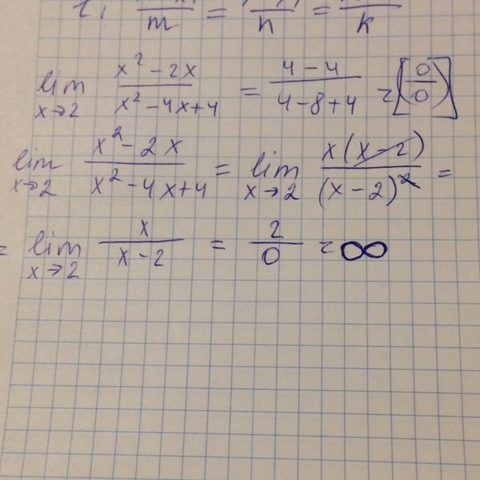 m = n = k
lim x→2 (x² - 2x)/(x² - 4x + 4) = (4 - 4)/(4 - 8 + 4) = [(0/0)]
lim x→2 (x² - 2x)/(x² - 4x + 4) = lim x→2 x(x - 2)/(x - 2)² =
= lim x→2 x/(x - 2) = 2/0 = ∞